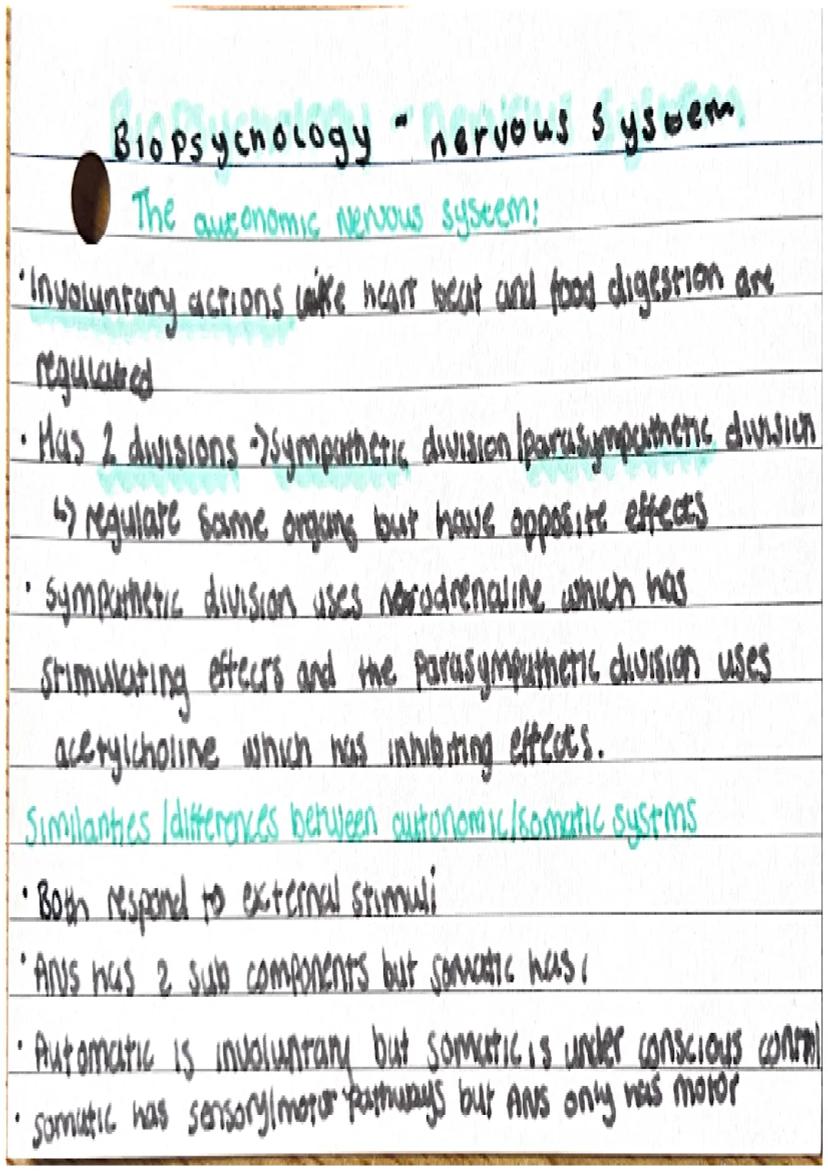 Biopsychology - nervous system
The autonomic nervous system:
· Involuntary actions like heart beat and food digestion are
regulated
· Has 2 divisions → sympathetic division/parasympathetic division
↳ regulate same organs but have opposite effects
· Sympathetic division uses noradrenaline which has
stimulating effects and the parasympathetic division uses
acetylcholine which has inhibiting effects.
Similarities/differences between autonomic/somatic systms
· Both respond to external stimuli
· ANS has 2 sub components but somatic has 1
· Automatic is involuntary but somatic is under conscious control
· somatic has sensory/motor pathways but ANS only has motor